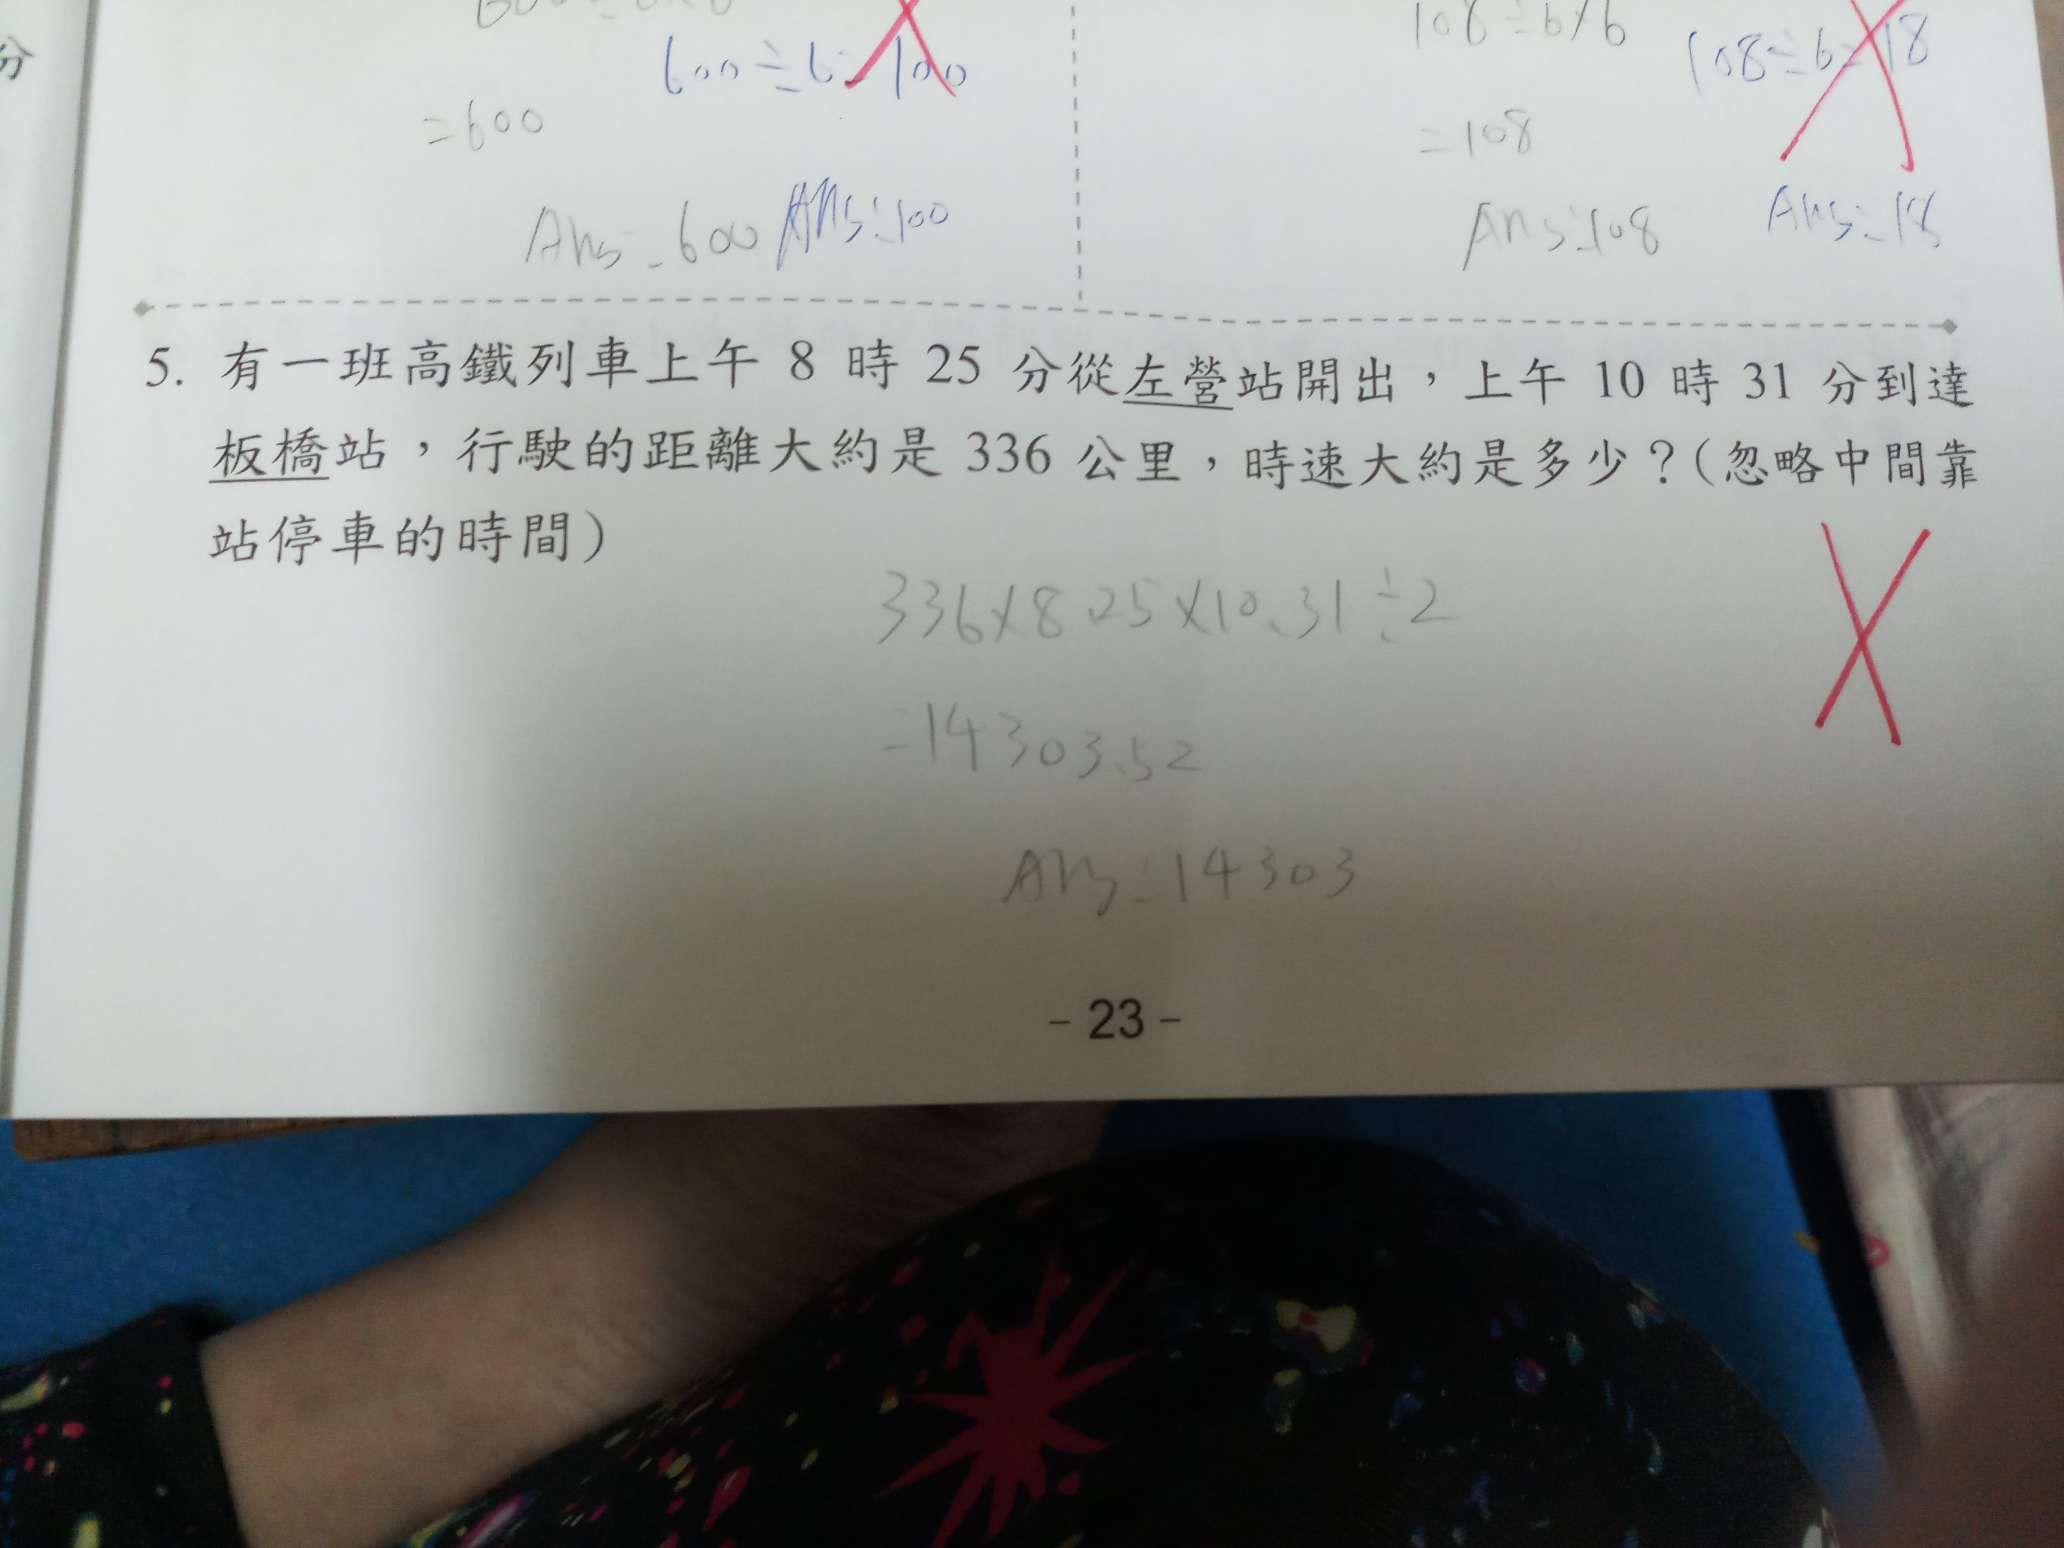 分
600÷6=100
108÷6×6
108÷6=18
=600
=108
Ans=600 Ans:100
Ans:108
Ans:18
5. 有一班高鐵列車上午 8 時 25 分從左營站開出，上午 10 時 31 分到達
板橋站，行駛的距離大約是 336 公里，時速大約是多少？(忽略中間靠
站停車的時間)
336×8.25×10.31÷2
=14303.52
Ans:14303
- 23 -